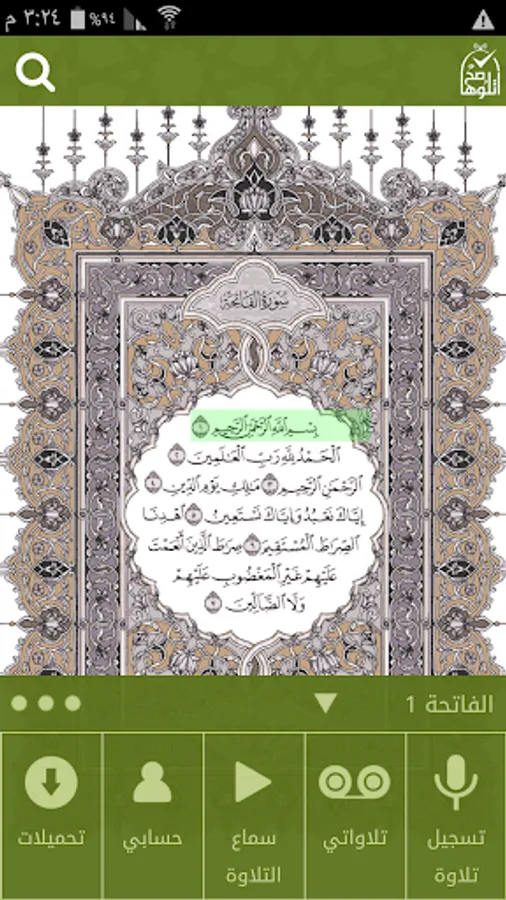 ٣:٢٤ م ٩٤%
اتلوها صح
سورة الفاتحة
بِسْمِ ٱللَّهِ ٱلرَّحْمَٰنِ ٱلرَّحِيمِ ١
ٱلْحَمْدُ لِلَّهِ رَبِّ ٱلْعَٰلَمِينَ ٢
ٱلرَّحْمَٰنِ ٱلرَّحِيمِ ٣ مَٰلِكِ يَوْمِ ٱلدِّينِ ٤
إِيَّاكَ نَعْبُدُ وَإِيَّاكَ نَسْتَعِينُ ٥ ٱهْدِنَا
ٱلصِّرَٰطَ ٱلْمُسْتَقِيمَ ٦ صِرَٰطَ ٱلَّذِينَ أَنْعَمْتَ
عَلَيْهِمْ غَيْرِ ٱلْمَغْضُوبِ عَلَيْهِمْ
وَلَا ٱلضَّآلِّينَ ٧
الفاتحة 1
تسجيل تلاوة
تلاواتي
سماع التلاوة
حسابي
تحميلات